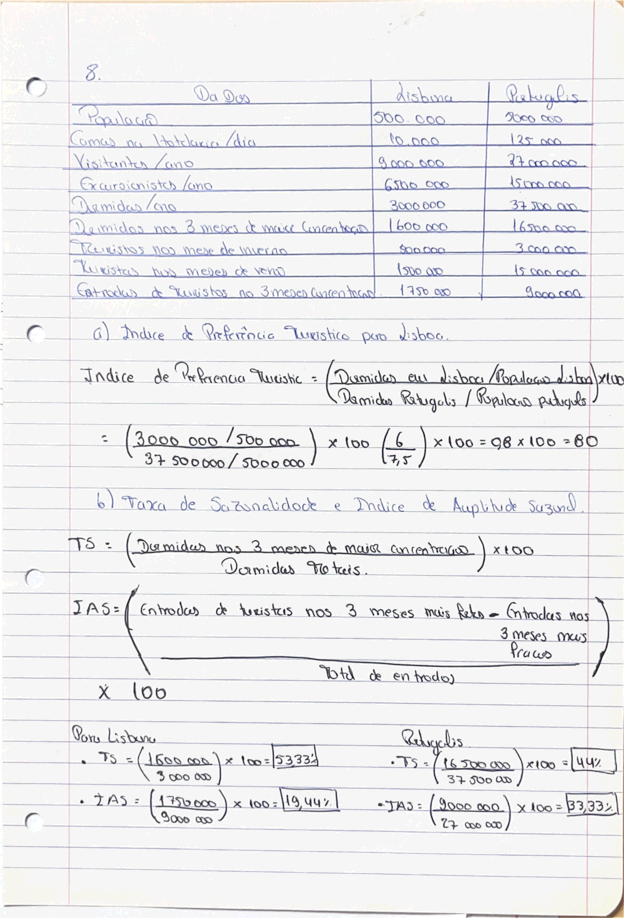 8.
Dados Lisbona Portugalis
População 500.000 5000 000
Camas na Hotelaria /dia 10.000 125 000
Visitantes /ano 9000 000 27 000 000
Excursionistas /ano 6500 000 15000.000
Dormidas /ano 3000 000 37 500 000
Dormidas nos 3 meses de maior Concentração 1600 000 16500 000
Turistas nos mese de inverno 500 000 3.000 000
Turistas nos meses de verão 1500 000 15 000.000
Entradas de turistas no 3 meses Concentração 1750 000 9000 000
a) Indice de Preferência Turistico para Lisboa.
Indice de Preferencia Turistic = (Dormidas em Lisboa /População Lisboa) x100
Dormidas Portugals / População português
= (3000 000 /500 000) x 100 (6) x 100 = 98 x 100 = 80
37 500000/5000000 7,5
b) Taxa de Sazonalidade e Indice de Amplitude Sazonal.
TS = (Dormidas nos 3 meses de maior concentração) x100
Dormidas Totais.
IAS= (Entradas de turistas nos 3 meses mais fortes - Entradas nos
3 meses mais
fracos)
Total de entradas
x 100
Para Lisbona Portugalis
• TS = (1600 000) x 100= 53,33% • TS = (16 500 000) x100 = 44%
3 000 000 37 500 000
• IAS = (1750 000) x 100= 19,44% • IAS = (9000 000) x 100 = 33,33%
9000 000 27 000 000